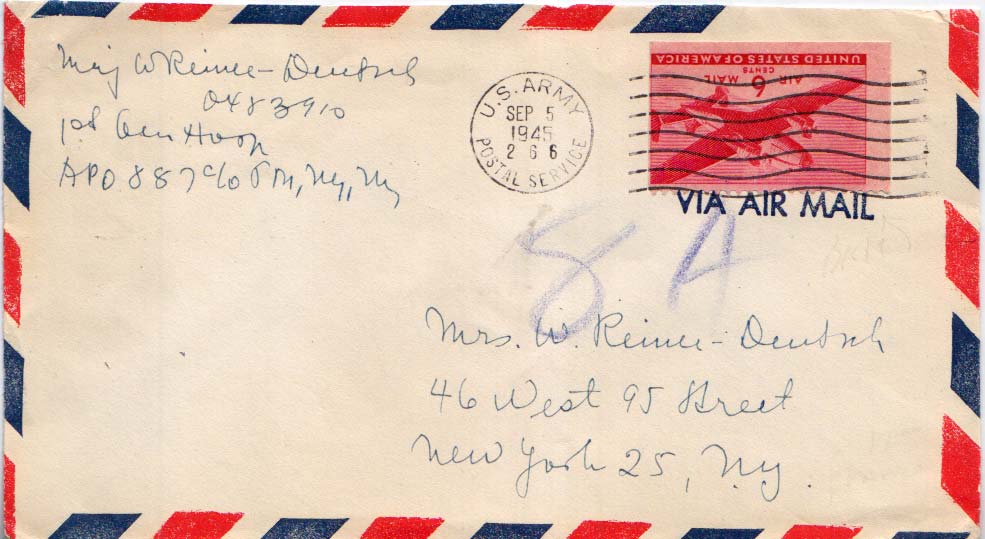 Maj W Reiner-Deutsch
0483910
1st Gen Hosp
APO 887 c/o PM, Ny, Ny
U.S. ARMY
SEP 5
1945
2 6 6
POSTAL SERVICE
UNITED STATES OF AMERICA
AIR MAIL
6 CENTS
VIA AIR MAIL
8 A
Mrs. W. Reiner-Deutsch
46 West 95 Street
New York 25, Ny.